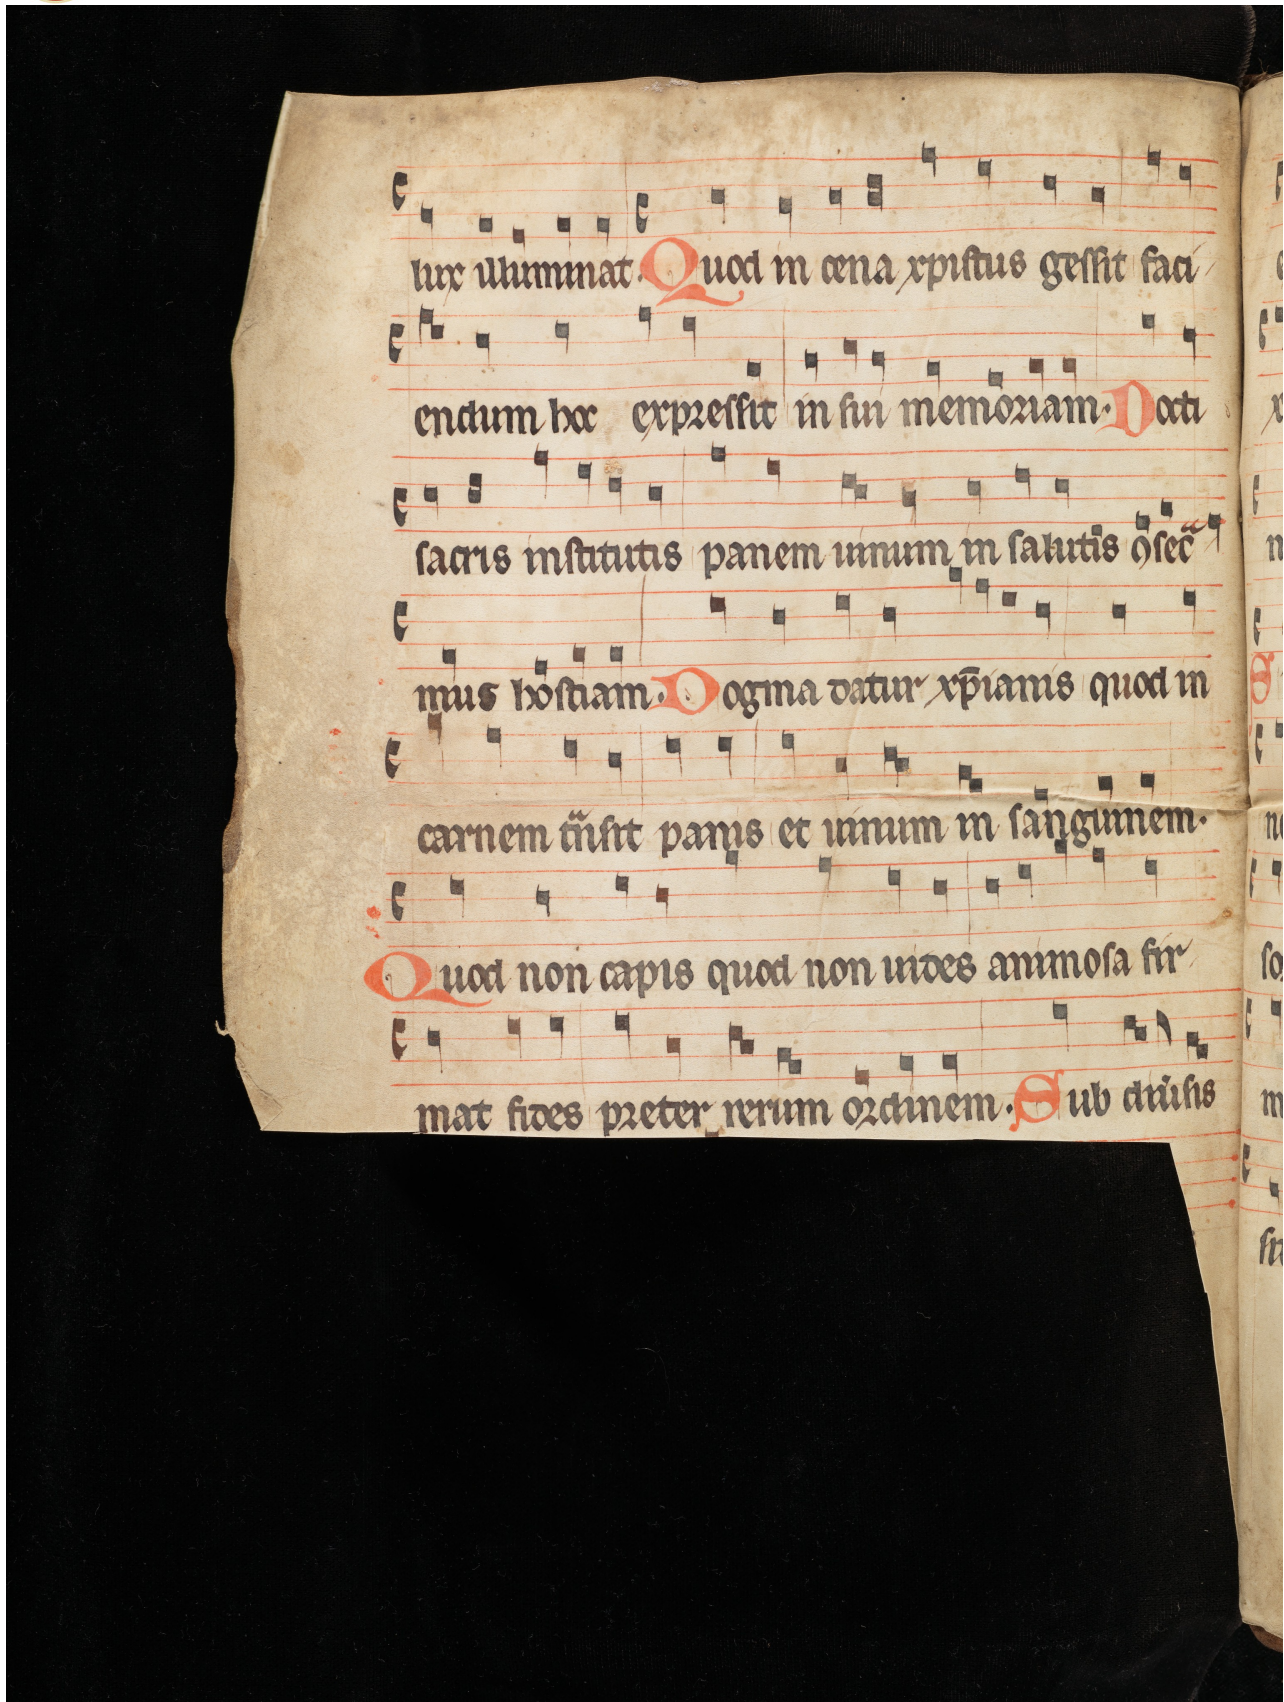 lux illuminat. Quod in cena xpistus gessit faci
endum hoc expressit in sui memoriam. Docti
sacris institutis panem uinum in salutis ꝯsecͣ
mus hostiam. Dogma datur xp̄ianis quod in
carnem tͣnsit panis et uinum in sanguinem.
Quod non capis quod non uides animosa fir
mat fides preter rerum ordinem. Sub diuͥsis